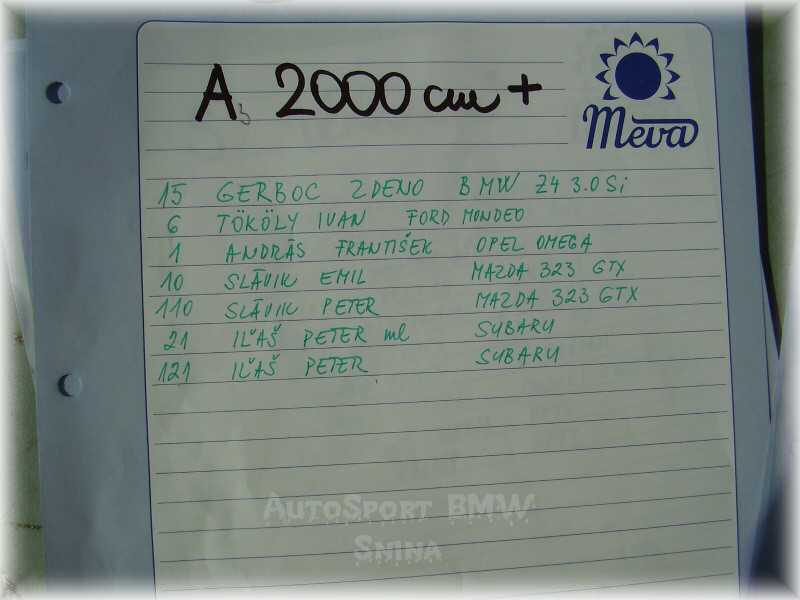 A3 2000 cm +
Meva
15 GERBOC ZDENO BMW Z4 3.0 Si
6 TÖKÖLY IVAN FORD MONDEO
1 ANDRÁS FRANTIŠEK OPEL OMEGA
10 SLÁVIK EMIL MAZDA 323 GTX
110 SLÁVIK PETER MAZDA 323 GTX
21 IĽAŠ PETER ml SUBARU
121 IĽAŠ PETER SUBARU
AUTOSPORT BMW
SNINA